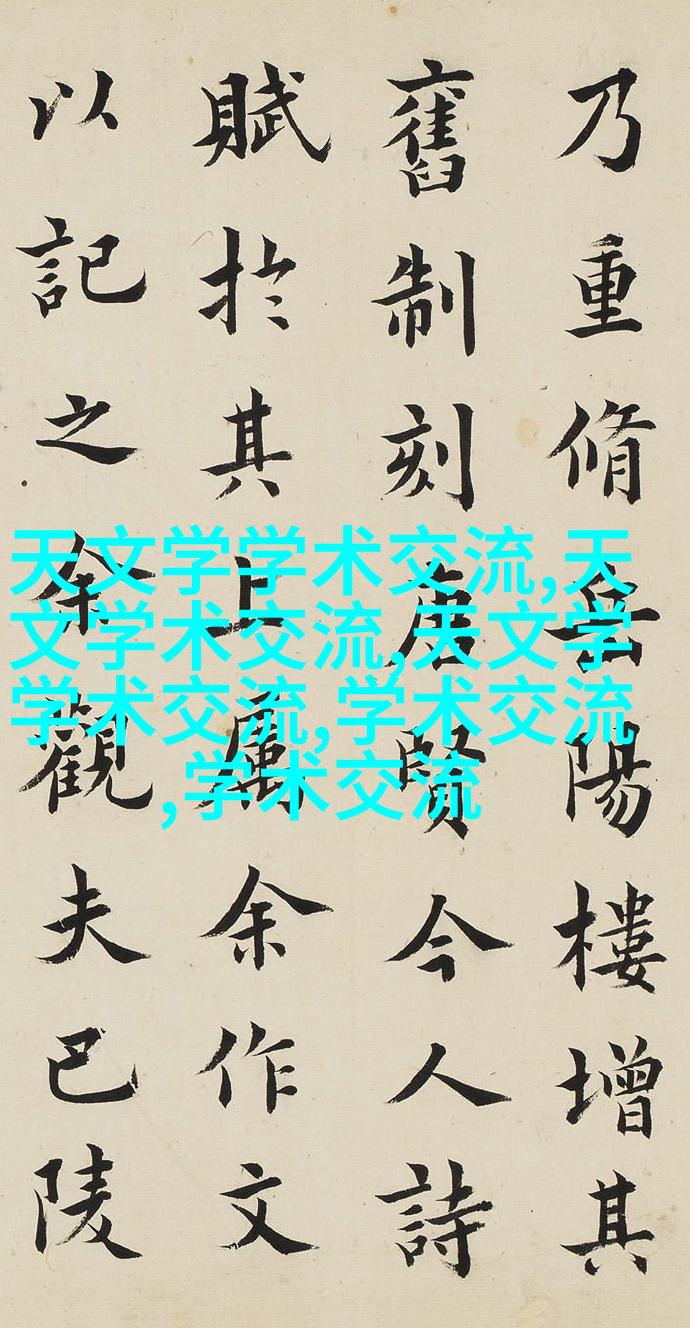 乃重脩岳陽樓增其
舊制刻唐賢今人詩
賦扵其上属余作文
以記之余觀夫巴陵
天文学学术交流,天
文学术交流,天文学
学术交流,学术交流
,学术交流